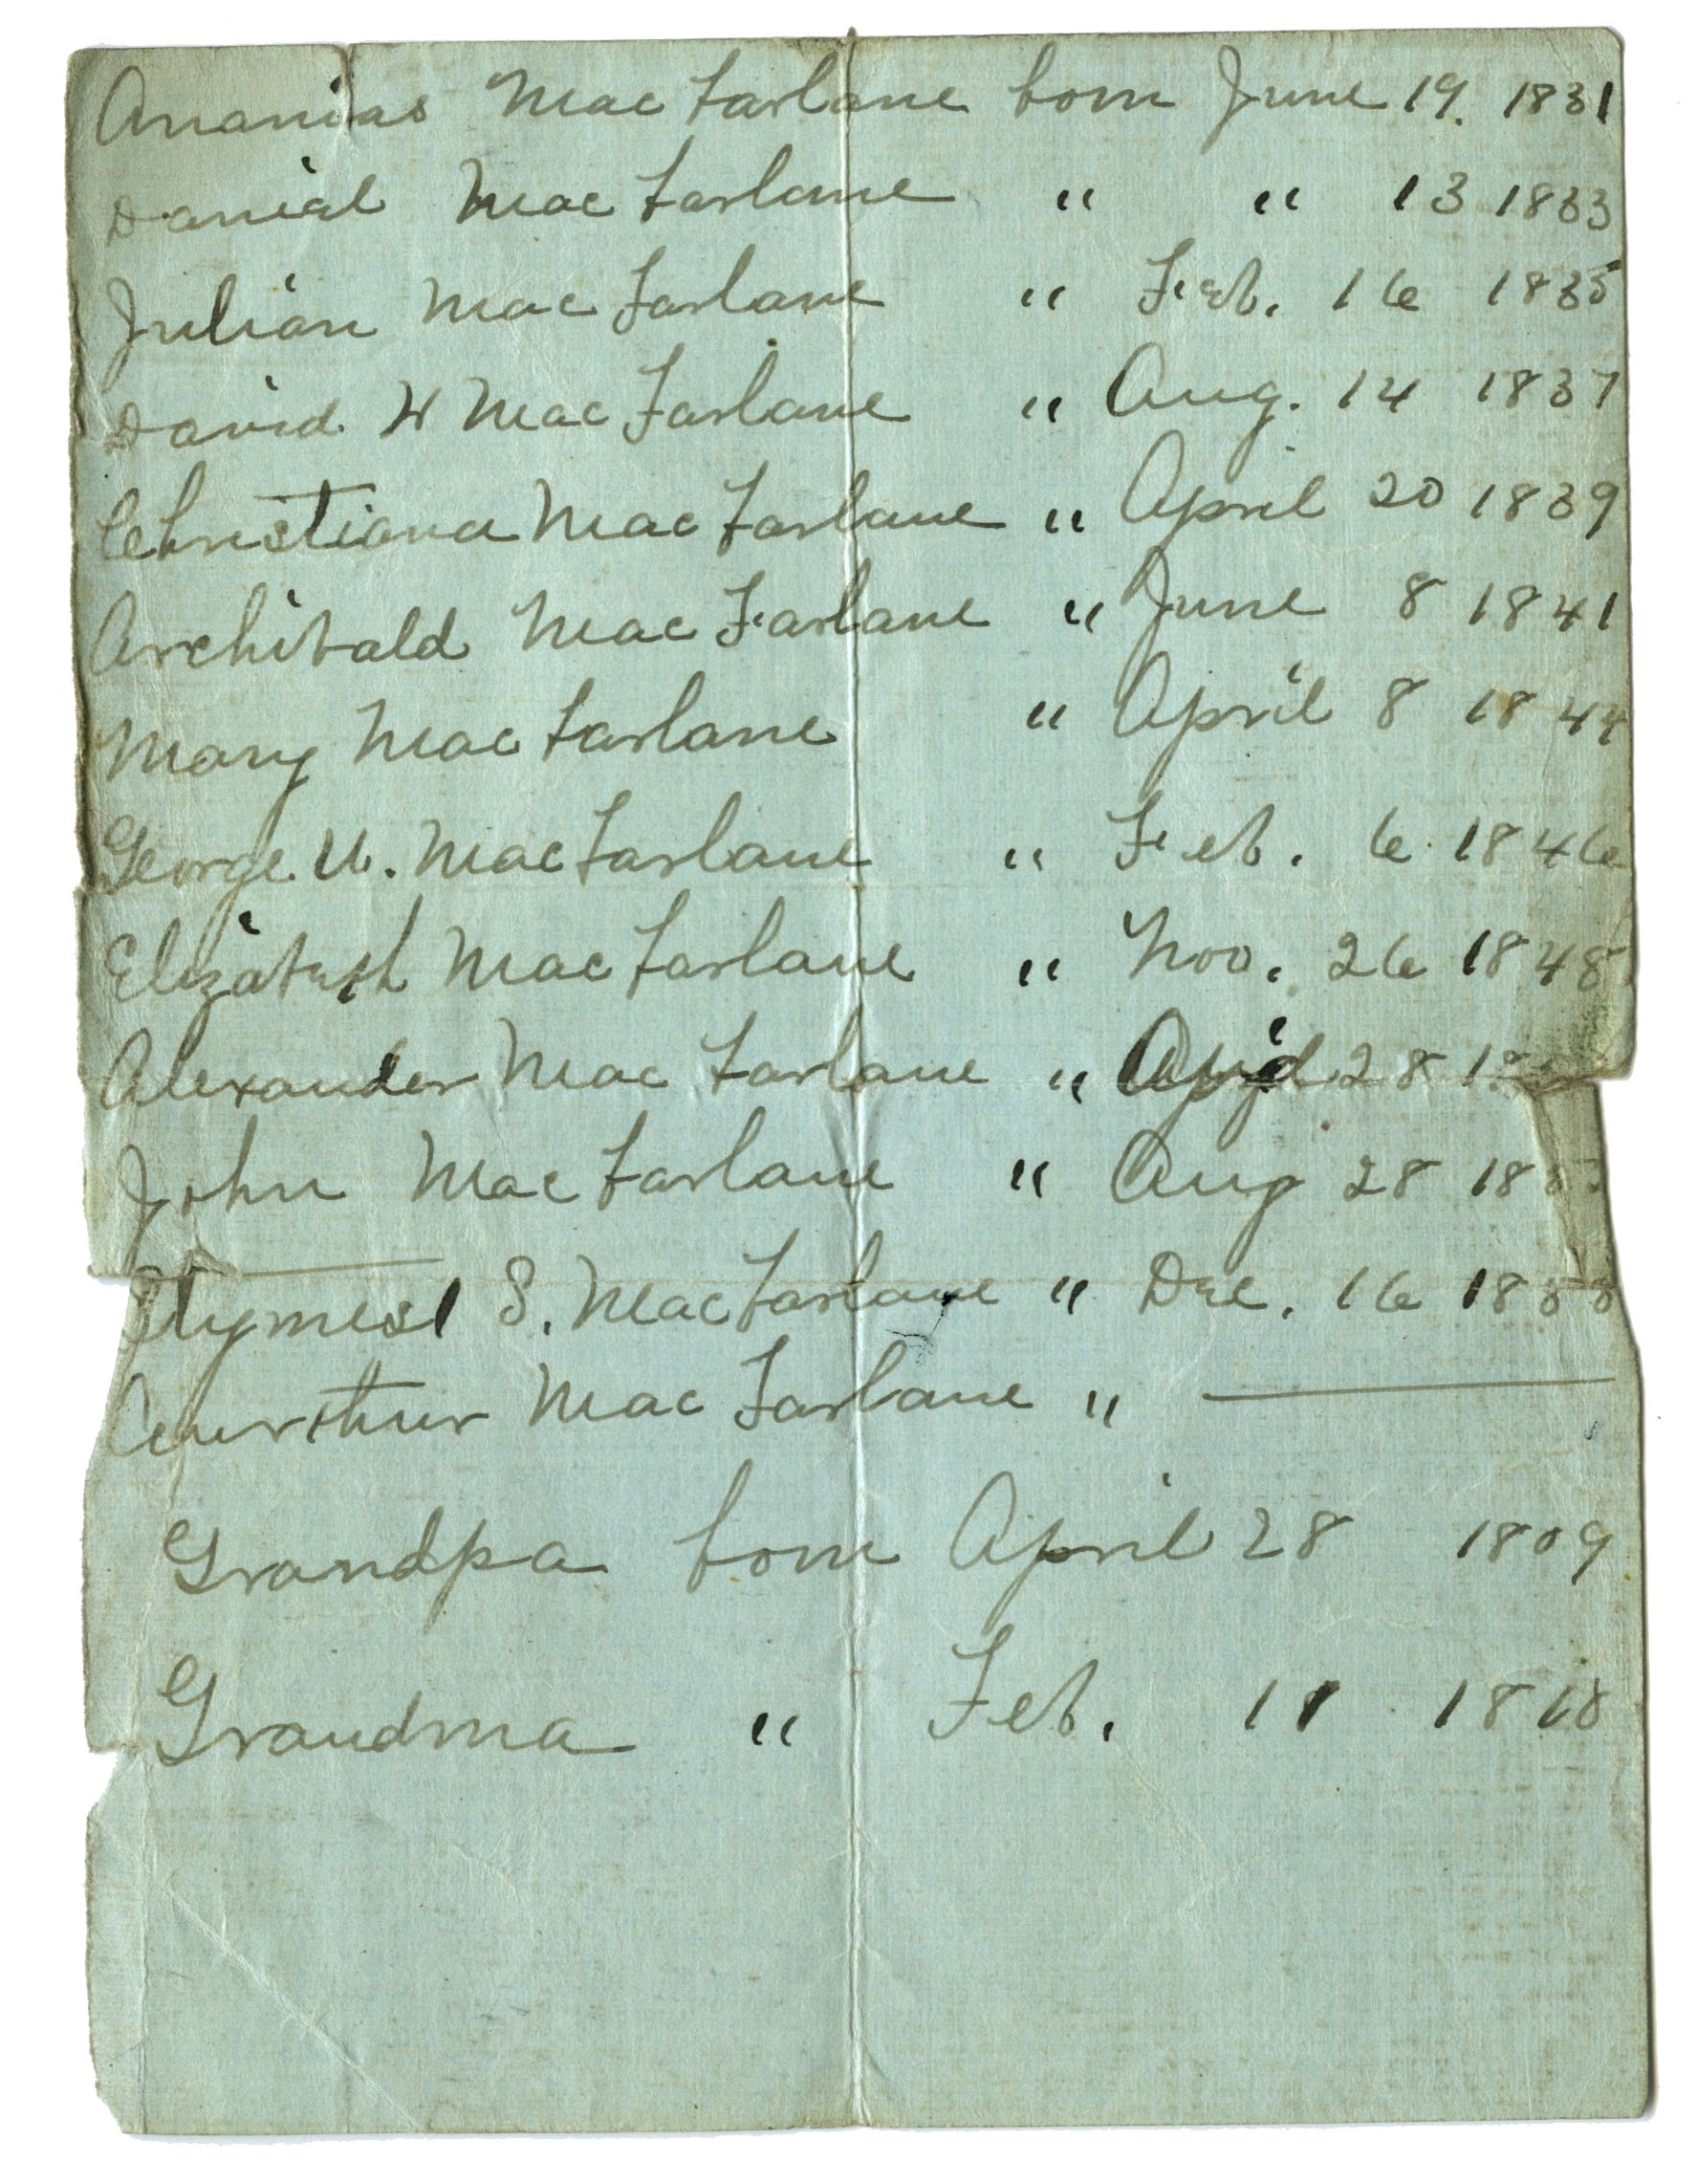 Ananias MacFarlane born June 19. 1831
Daniel MacFarlane " " 13 1833
Julian MacFarlane " Feb. 16 1835
David W MacFarlane " Aug. 14 1837
Christiana MacFarlane " April 20 1839
Archibald MacFarlane " June 8 1841
Mary MacFarlane " April 8 1844
George U. MacFarlane " Feb. 6 1846
Elizabeth MacFarlane " Nov. 26 1848
Alexander MacFarlane " April 28
John MacFarlane " Aug 28
S. MacFarlane " Dec. 16 1858
MacFarlane "
Grandpa born April 28 1809
Grandma " Feb. 11 1810